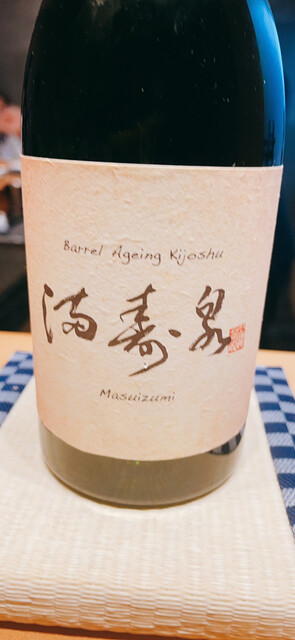 Barrel Ageing Kijoshu
満寿泉
Masuizumi